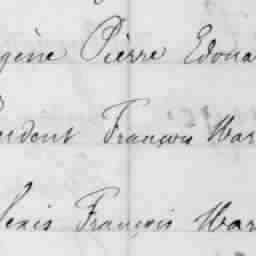 gène Pierre Edoua
ident François War
lexis François War